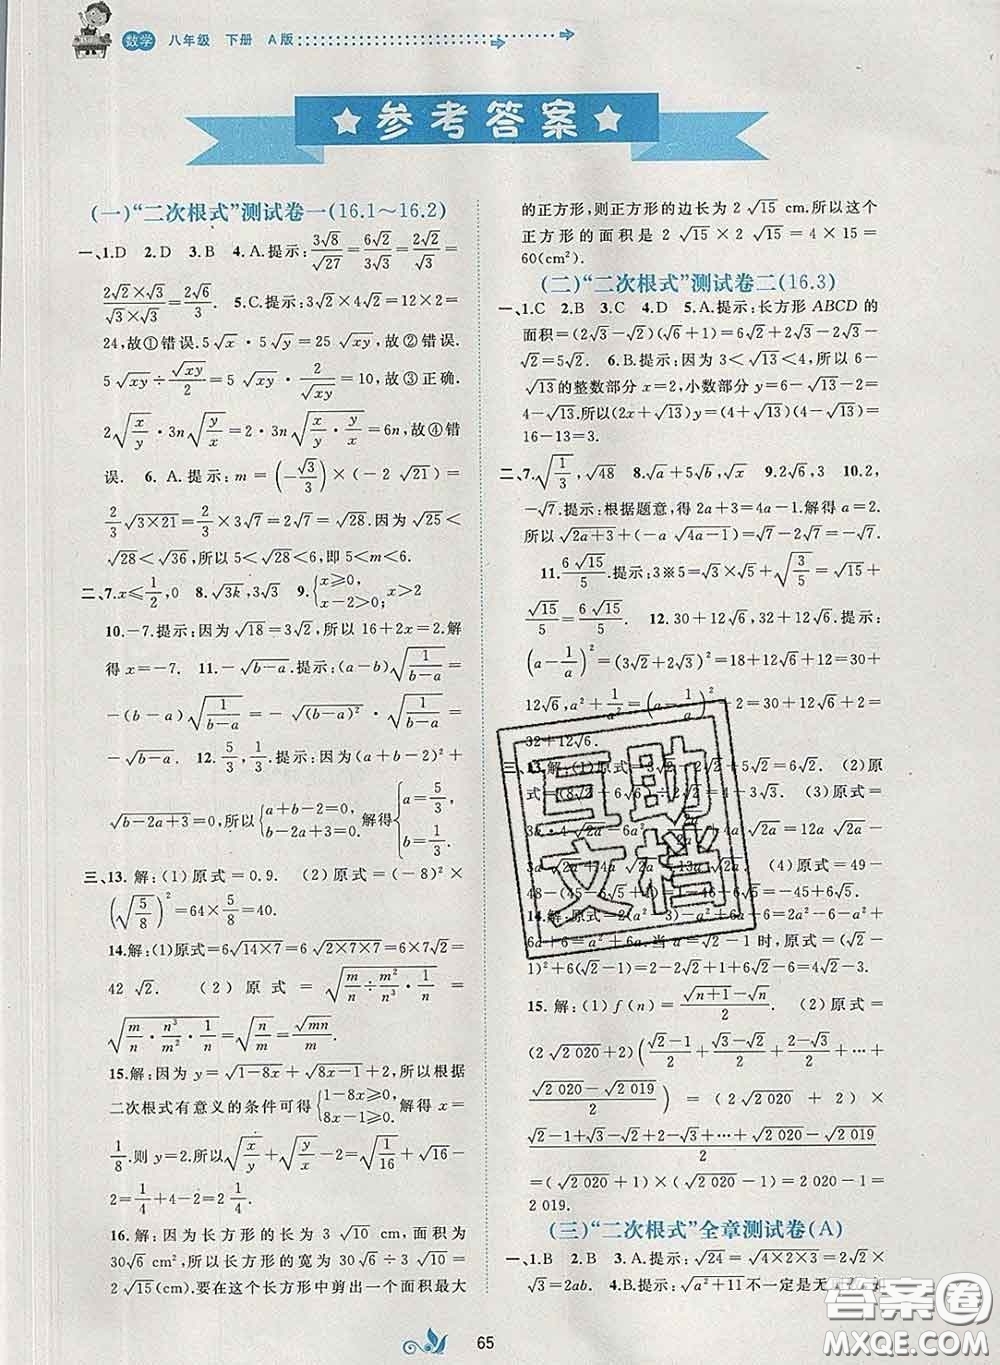 数学 八年级 下册 A版
参考答案
(一)“二次根式”测试卷一(16.1～16.2)
一、1.D 2.D 3.B 4.A.提示:3√8/√27=6√2/3√3=2√2/√3=
2√2×√3/√3×√3=2√6/3. 5.C.提示:3√2×4√2=12×2=
24,故①错误.5√x·5√y=25√xy,故②错误.
5√xy÷√xy/2=5√xy·2/√xy=10,故③正确.
2√(x/y)·3n√(y/x)=2·3n√(x/y·y/x)=6n,故④错
误. 6.A.提示:m=(-√3/3)×(-2√21)=
2/3√(3×21)=2/3×3√7=2√7=√28.因为√25<
√28<√36,所以5<√28<6,即5<m<6.
二、7.x≤1/2,0 8.√3k,3√3 9.{x≥0, x-2>0; x>2
10.-7.提示:因为√18=3√2,所以16+2x=2.解
得x=-7. 11.-√(b-a).提示:(a-b)√(1/(b-a))=
-(b-a)√(1/(b-a))=-√(b-a)²·√(1/(b-a))=
-√(b-a). 12.5/3,1/3.提示:因为(a+b-2)²+
√(b-2a+3)=0,所以{a+b-2=0, b-2a+3=0. 解得{a=5/3, b=1/3.
三、13.解:(1)原式=0.9. (2)原式=(-8)²×
(√(5/8))²=64×5/8=40.
14.解:(1)原式=6√(14×7)=6√(2×7×7)=
42√2. (2)原式=√(m/n÷m²/n³·1/n)=
√(m/n·n³/m²·1/n)=√(n/m)=√mn/m.
15.解:因为y=√(1-8x)+√(8x-1)+2,所以根据
二次根式有意义的条件可得{1-8x≥0, 8x-1≥0. 解得x=
1/8.则y=2.所以√(x/y)+√(y/x)-2=√(1/16)+√16
-2=1/4+4-2=2 1/4.
16.解:因为长方形的长为3√10 cm,面积为
30√6 cm²,所以长方形的宽为30√6÷3√10=
2√15(cm).要在这个长方形中剪出一个面积最大
的正方形,则正方形的边长为2√15 cm.所以这个
正方形的面积是2√15×2√15=4×15=
60(cm²).
(二)“二次根式”测试卷二(16.3)
一、1.C 2.B 3.C 4.D 5.A.提示:长方形ABCD的
面积=(2√3-√2)(√6+1)=6√2+2√3-2√3-
√2=5√2. 6.B.提示:因为3<√13<4,所以6-
√13的整数部分x=2,小数部分y=6-√13-2=
4-√13.所以(2x+√13)y=(4+√13)(4-√13)=
16-13=3.
二、7.√(1/3),√48 8.√a+5√b,√x 9.2√6,3 10.2,
-√7.提示:根据题意,得2a+3=4a-1.解得a=2.
所以√(2a+3)+(-2√(4a-1))=√7-2√7=-√7.
11.6√15/5.提示:3※5=√3×√5+√(3/5)=√15+
√15/5=6√15/5. 12.30+12√6,32+12√6.提示:
(a-1/a)²=(3√2+2√3)²=18+12√6+12=30+
12√6,a²+1/a²=(a-1/a)²+2=30+12√6+2=
32+12√6.
三、13.解:(1)原式=3√2-2√2+5√2=6√2. (2)原
式=(8√2+6√6)÷2√2=4-3√3. (3)原式=
14.解:原式=2(a²-3)-a²+6a+6=2a²-6-a²+
6a+6=a²+6a.当a=√2-1时,原式=(√2-
1)²+6(√2-1)=2-2√2+1+6√2-6=4√2-3.
15.解:(1)f(n)=(√(n+1)-√n)/2. (2)原式=
(2√2020+2)((√2-1)/2+(√3-√2)/2+(2-√3)/2+…+
(√2020-√2019)/2)=(2√2020+2)×
(√2-1+√3-√2+…+√2020-√2019)/2
=(√2020+1)(√2020-1)=2020-1=
2019.
(三)“二次根式”全章测试卷(A)
一、1.B 2.B 3.A.提示:√24=√(4×2×3)=2√2×
√3=2ab. 4.B.提示:√(a²+11)不一定是无
65
互助
文档
答案圈
MXQE.COM